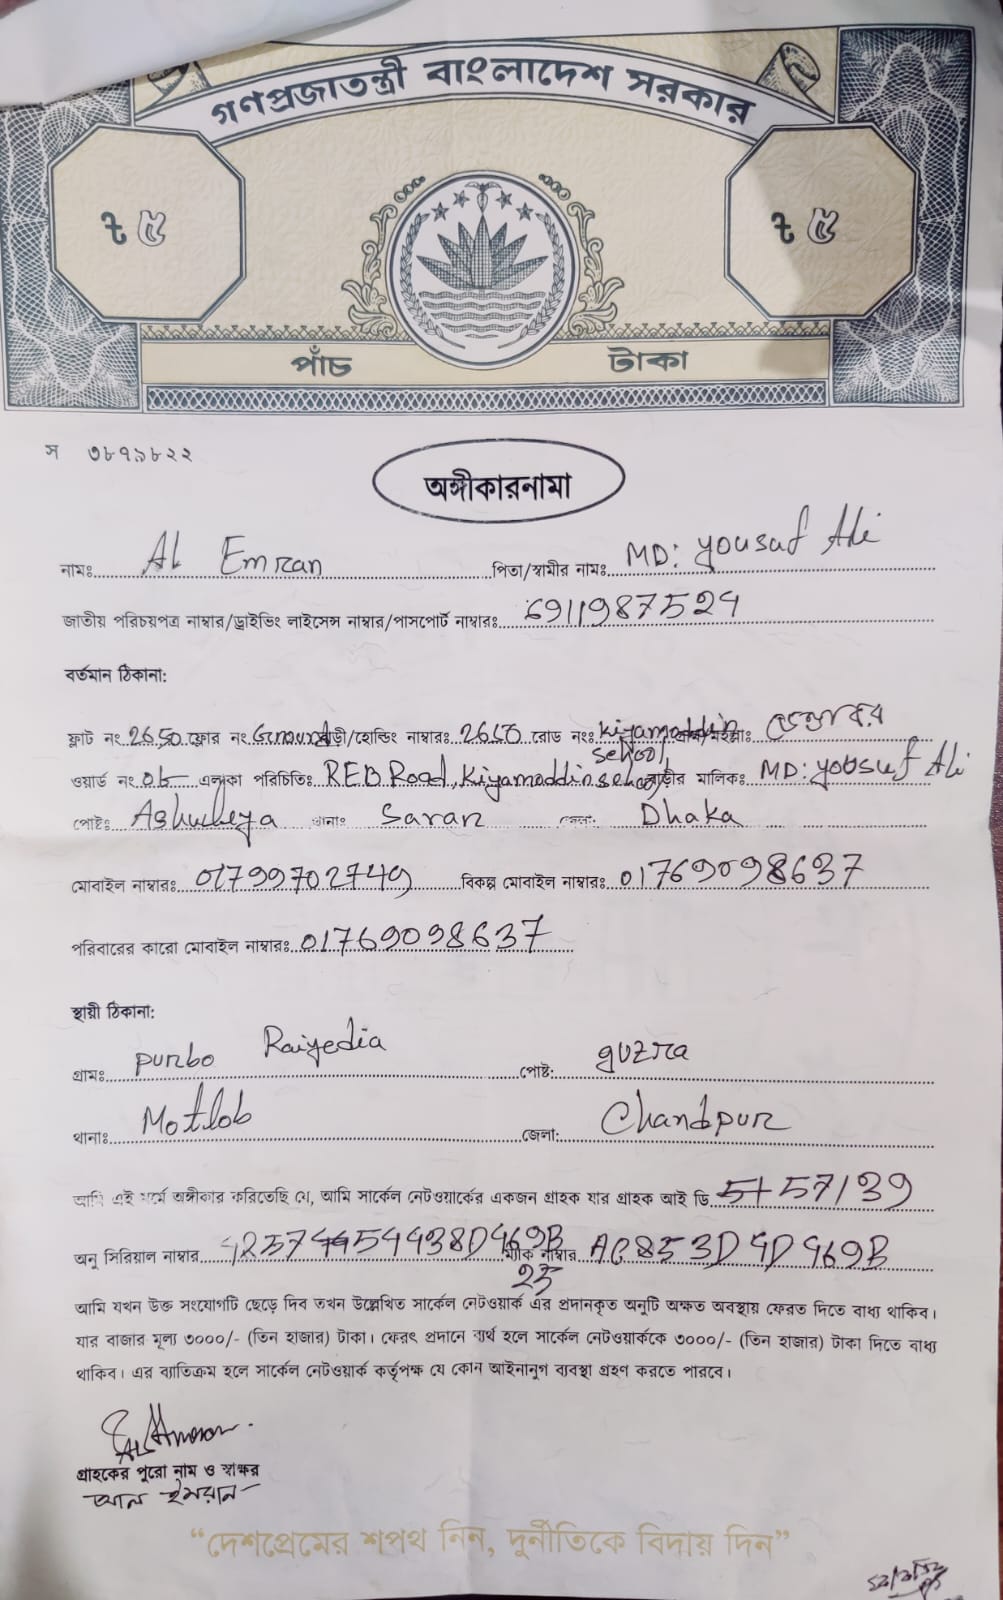 গণপ্রজাতন্ত্রী বাংলাদেশ সরকার
৳ ৫ ৳ ৫
পাঁচ টাকা
স ৩৮৭৯৮২২
অঙ্গীকারনামা
নামঃ AL Emran পিতা/স্বামীর নামঃ MD: yousuf Ali
জাতীয় পরিচয়পত্র নাম্বার/ড্রাইভিং লাইসেন্স নাম্বার/পাসপোর্ট নাম্বারঃ 6911987524
বর্তমান ঠিকানা:
ফ্লাট নং 2650 ফ্লোর নং Ground বাড়ী/হোল্ডিং নাম্বারঃ 2650 রোড নংঃ kiyamoddin school,
ওয়ার্ড নং 05 এলাকা পরিচিতিঃ REB Road, Kiyamoddin school বাড়ীর মালিকঃ MD: yousuf Ali
পোষ্টঃ থানাঃ Savar জেলাঃ Dhaka
মোবাইল নাম্বারঃ 01799702749 বিকল্প মোবাইল নাম্বারঃ 01769098637
পরিবারের কারো মোবাইল নাম্বারঃ 01769098637
স্থায়ী ঠিকানা:
গ্রামঃ purbo Raiyedia পোষ্ট: guzra
থানাঃ Motlob জেলা: Chandpur
আমি এই মর্মে অঙ্গীকার করিতেছি যে, আমি সার্কেল নেটওয়ার্কের একজন গ্রাহক যার গ্রাহক আই ডি
অনু সিরিয়াল নাম্বার ম্যাক নাম্বার AC853D4D469B
25
আমি যখন উক্ত সংযোগটি ছেড়ে দিব তখন উল্লেখিত সার্কেল নেটওয়ার্ক এর প্রদানকৃত অনুটি অক্ষত অবস্থায় ফেরত দিতে বাধ্য থাকিব।
যার বাজার মূল্য ৩০০০/- (তিন হাজার) টাকা। ফেরৎ প্রদানে ব্যর্থ হলে সার্কেল নেটওয়ার্ককে ৩০০০/- (তিন হাজার) টাকা দিতে বাধ্য
থাকিব। এর ব্যতিক্রম হলে সার্কেল নেটওয়ার্ক কর্তৃপক্ষ যে কোন আইনানুগ ব্যবস্থা গ্রহণ করতে পারবে।
গ্রাহকের পুরো নাম ও স্বাক্ষর
আল ইমরান
“দেশপ্রেমের শপথ নিন, দুর্নীতিকে বিদায় দিন”